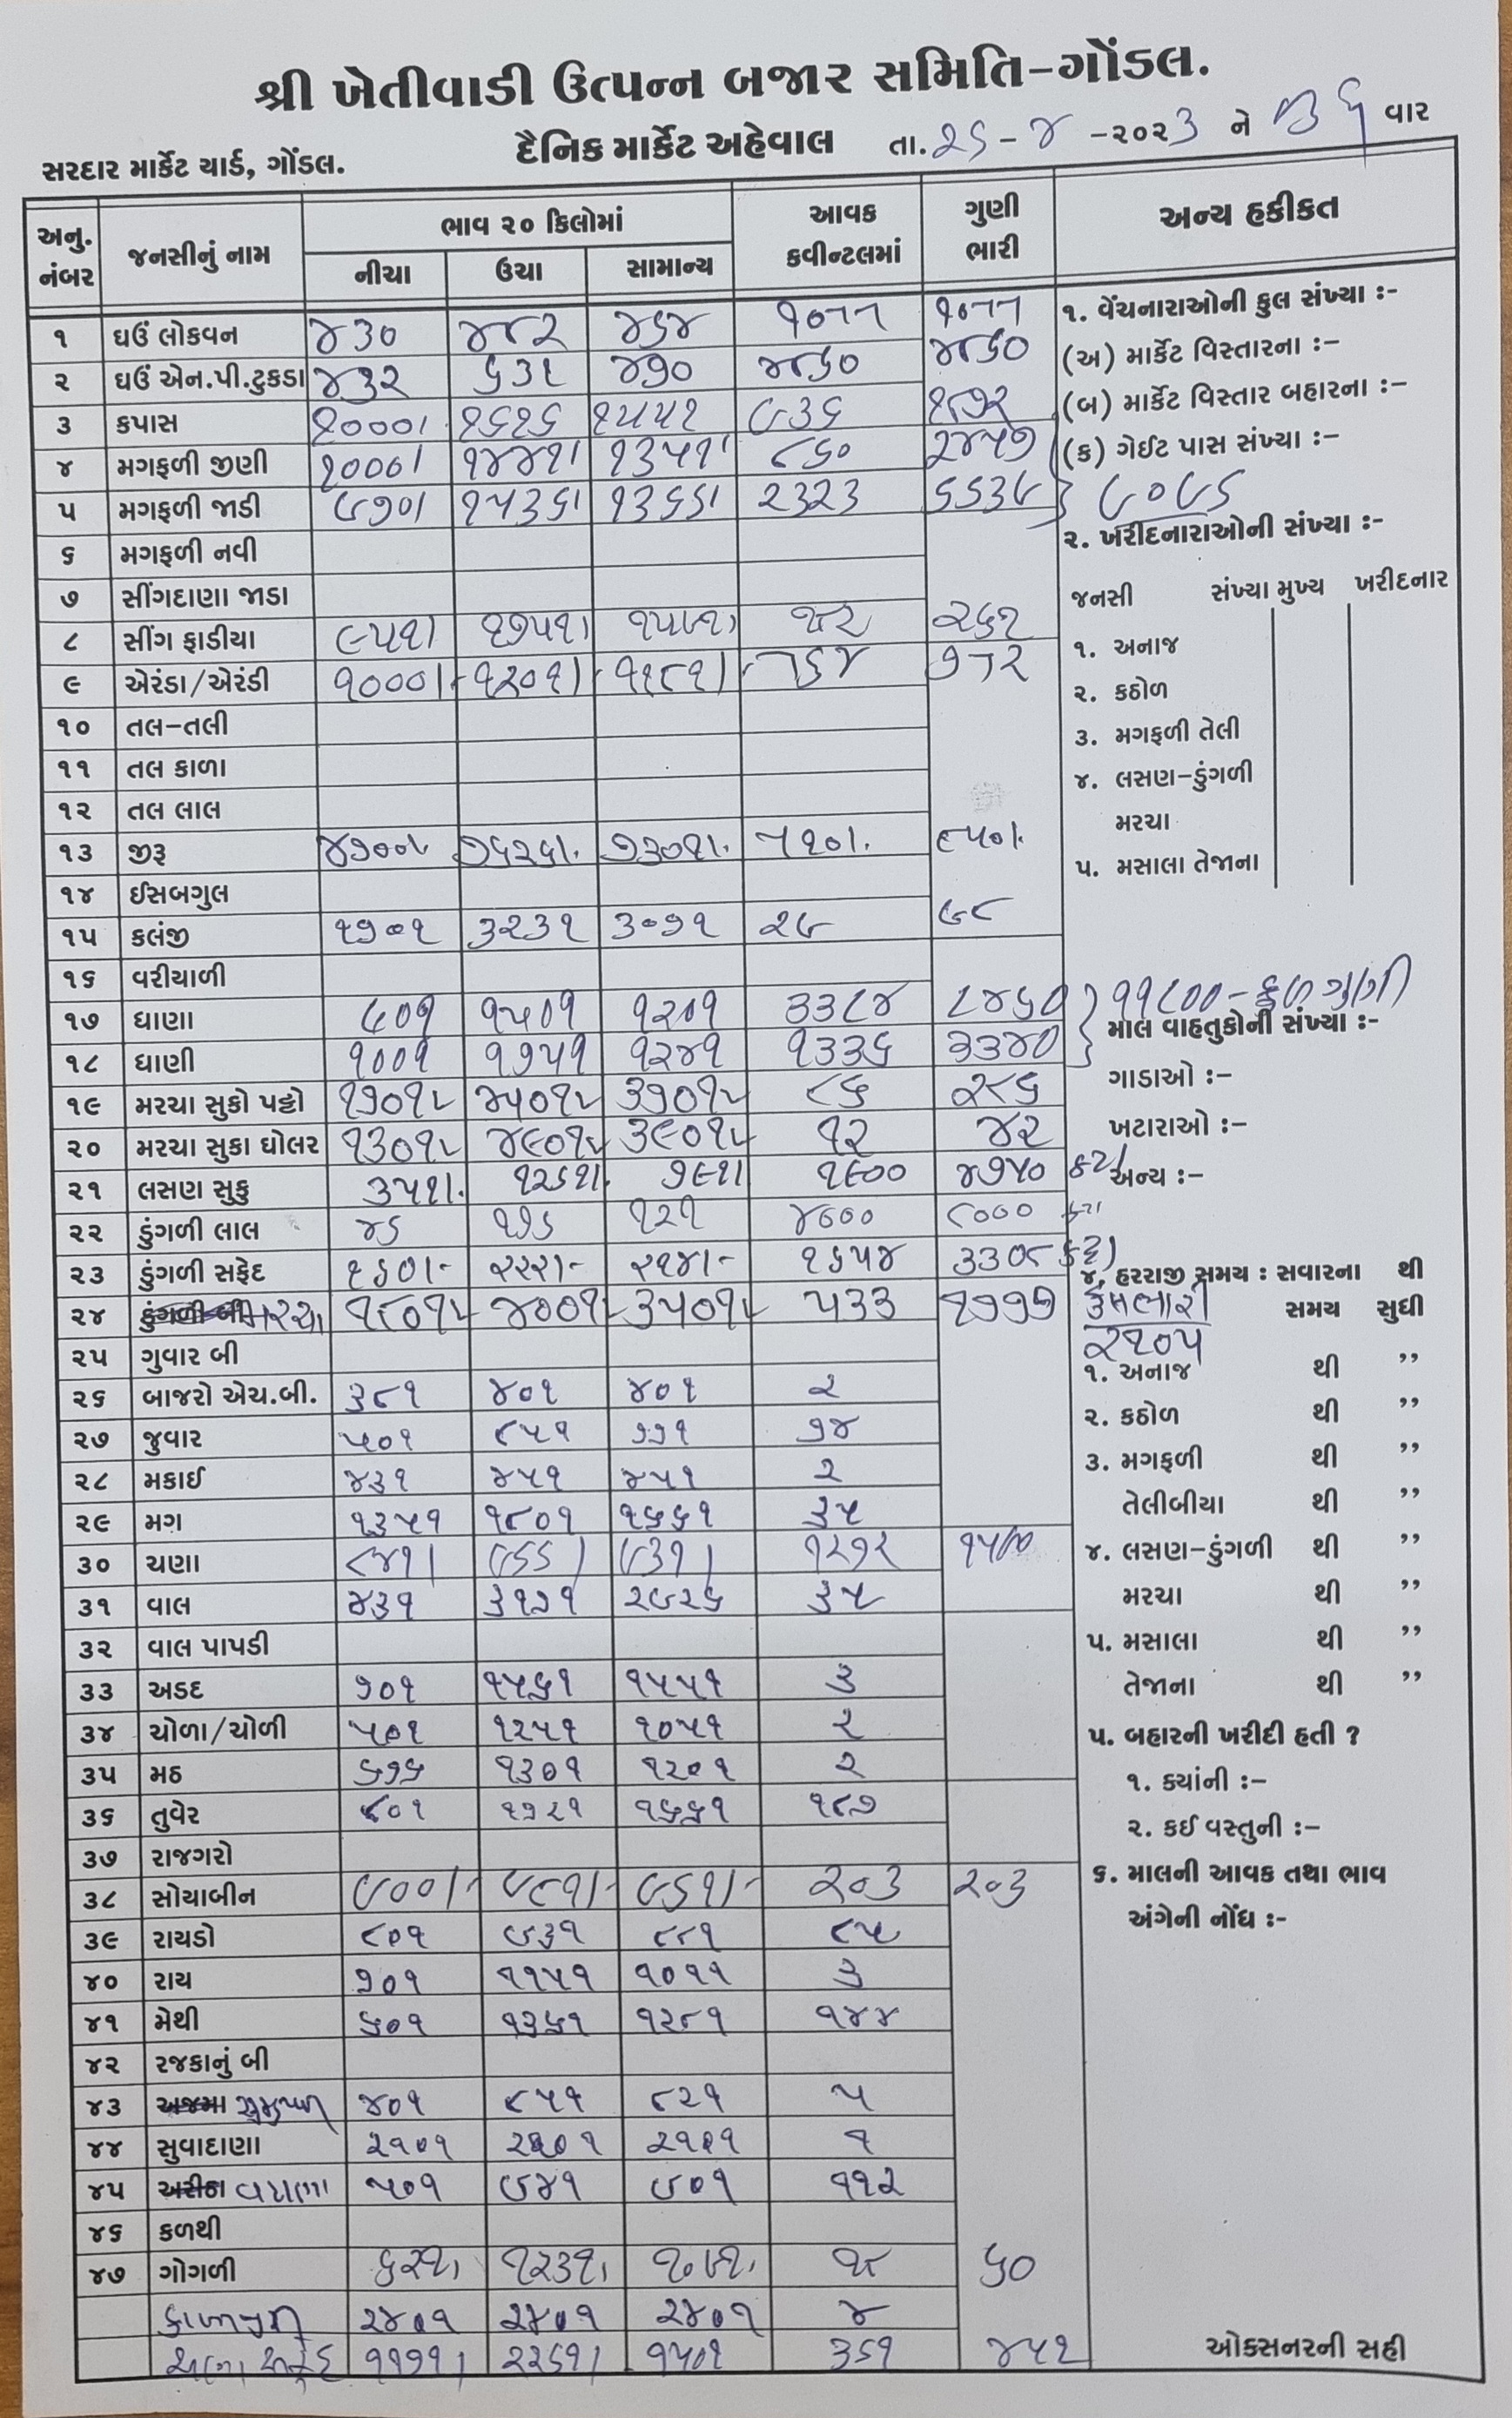 શ્રી ખેતીવાડી ઉત્પન્ન બજાર સમિતિ-ગોંડલ.
સરદાર માર્કેટ યાર્ડ, ગોંડલ. દૈનિક માર્કેટ અહેવાલ તા. ૨૬-૪-૨૦૨૩ ને બુધ વાર
અનુ. નંબર જનસીનું નામ ભાવ ૨૦ કિલોમાં આવક કવીન્ટલમાં ગુણી ભારી અન્ય હકીકત
નીચા ઉચા સામાન્ય
૧ ઘઉં લોકવન ૪૩૦ ૪૮૨ ૪૬૪ ૧૦૧૧ ૧૦૧૧
૨ ઘઉં એન.પી.ટુકડા ૪૩૨ ૬૩૧ ૪૭૦
૩ કપાસ ૧૦૦૦। ૧૬૧૬ ૧૫૫૧ ૯૩૬
૪ મગફળી જીણી ૧૦૦૦। ૧૪૪૧। ૧૩૫૧। ૮૬૦ ૨૪૫૭
૫ મગફળી જાડી ૯૭૦। ૧૫૩૬। ૧૩૬૬। ૨૩૨૩ ૬૬૩૯
૬ મગફળી નવી
૭ સીંગદાણા જાડા
૮ સીંગ ફાડીયા ૯૫૧। ૧૭૫૧। ૧૫૯૧। ૨૬૧
૯ એરંડા/એરંડી ૧૦૦૦। ૧૨૦૧। ૧૧૮૧। ૭૧૨
૧૦ તલ-તલી
૧૧ તલ કાળા
૧૨ તલ લાલ
૧૩ જીરૂ ૭૬૨૬। ૭૩૦૧। ૯૫૦।
૧૪ ઈસબગુલ
૧૫ કલંજી ૧૭૦૧ ૩૨૩૧ ૩૦૭૧ ૨૯ ૯૮
૧૬ વરીયાળી
૧૭ ધાણા ૯૦૧ ૧૫૦૧ ૧૨૦૧ ૩૩૮૪ ૮૪૬૦
૧૮ ધાણી ૧૦૦૧ ૧૭૫૧ ૧૨૪૧ ૧૩૩૬ ૩૩૪૦
૧૯ મરચા સુકો પટ્ટો ૧૭૦૧ ૪૫૦૧ ૩૭૦૧ ૮૬ ૨૮૬
૨૦ મરચા સુકા ઘોલર ૧૩૦૧ ૪૯૦૧ ૩૯૦૧ ૧૨ ૪૨
૨૧ લસણ સુકુ ૩૫૧। ૧૨૬૧। ૭૯૧। ૧૯૦૦ ૪૭૫૦ કટા
૨૨ ડુંગળી લાલ ૪૬ ૧૭૬ ૧૨૧ ૪૦૦૦ ૮૦૦૦ કટા
૨૩ ડુંગળી સફેદ ૧૬૦।- ૨૨૨।- ૨૧૪।- ૧૬૫૪ ૩૩૦૮ કટ્ટા
૨૪ ડુંગળી બી મરચા ૧૮૦૧ ૪૦૦૧ ૩૫૦૧ ૫૩૩ ૧૭૭૭
૨૫ ગુવાર બી
૨૬ બાજરો એચ.બી. ૩૮૧ ૪૦૧ ૪૦૧ ૨
૨૭ જુવાર ૫૦૧ ૮૫૧ ૭૭૧ ૭૪
૨૮ મકાઈ ૪૩૧ ૪૫૧ ૪૫૧ ૨
૨૯ મગ ૧૩૫૧ ૧૮૦૧ ૧૬૬૧ ૩૫
૩૦ ચણા ૮૪૧। ૯૬૬। ૯૩૧। ૧૨૭૨
૩૧ વાલ ૪૩૧ ૩૧૭૧ ૨૯૨૬ ૩૫
૩૨ વાલ પાપડી
૩૩ અડદ ૭૦૧ ૧૫૬૧ ૧૫૫૧ ૩
૩૪ ચોળા/ચોળી ૫૦૧ ૧૨૫૧ ૧૦૫૧ ૨
૩૫ મઠ ૬૭૬ ૧૩૦૧ ૧૨૦૧ ૨
૩૬ તુવેર ૮૦૧ ૧૭૨૧ ૧૬૬૧ ૧૮૭
૩૭ રાજગરો
૩૮ સોયાબીન ૯૦૦।- ૯૮૧।- ૯૬૧।- ૨૦૩ ૨૦૩
૩૯ રાયડો ૮૦૧ ૯૩૧ ૮૮૧ ૮૫
૪૦ રાય ૭૦૧ ૧૧૫૧ ૧૦૧૧ ૩
૪૧ મેથી ૬૦૧ ૧૩૬૧ ૧૨૮૧ ૧૪૪
૪૨ રજકાનું બી
૪૩ અજમા ૪૦૧ ૮૫૧ ૮૨૧ ૫
૪૪ સુવાદાણા ૨૧૦૧ ૧
૪૫ અરીઠા વટાણા ૫૦૧ ૯૪૧ ૯૦૧ ૧૧૨
૪૬ કળથી
૪૭ ગોગળી ૬૨૧। ૧૨૩૧। ૧૦૯૧। ૬૦
૨૪૦૧ ૨૪૦૧ ૨૪૦૧ ૪
ચણા સફેદ ૧૧૭૧। ૨૨૬૧। ૧૫૦૧ ૩૬૧ ૪૫૧
૧. વેંચનારાઓની કુલ સંખ્યા :-
(અ) માર્કેટ વિસ્તારના :-
(બ) માર્કેટ વિસ્તાર બહારના :-
(ક) ગેઈટ પાસ સંખ્યા :-
૯૦૯૬
૨. ખરીદનારાઓની સંખ્યા :-
જનસી સંખ્યા મુખ્ય ખરીદનાર
૧. અનાજ
૨. કઠોળ
૩. મગફળી તેલી
૪. લસણ-ડુંગળી
મરચા
૫. મસાલા તેજાના
૧૧૮૦૦-કુલ ગુણી
માલ વાહતુકોની સંખ્યા :-
ગાડાઓ :-
ખટારાઓ :-
અન્ય :-
૪. હરરાજી સમય : સવારના થી
સમય સુધી
૨૧૦૫
૧. અનાજ થી ,,
૨. કઠોળ થી ,,
૩. મગફળી થી ,,
તેલીબીયા થી ,,
૪. લસણ-ડુંગળી થી ,,
મરચા થી ,,
૫. મસાલા થી ,,
તેજાના થી ,,
૫. બહારની ખરીદી હતી ?
૧. ક્યાંની :-
૨. કઈ વસ્તુની :-
૬. માલની આવક તથા ભાવ
અંગેની નોંધ :-
ઓકસનરની સહી